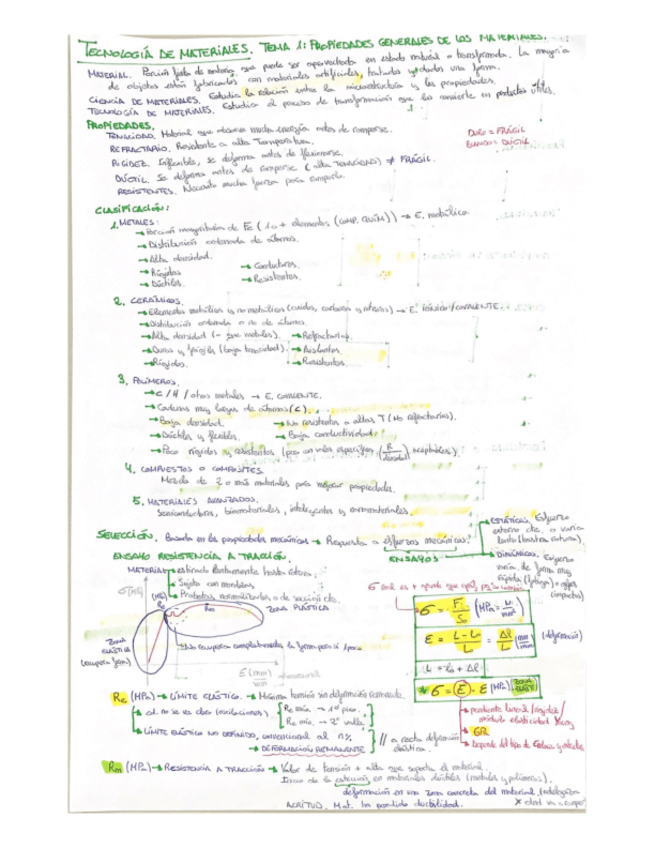 TECNOLOGÍA DE MATERIALES. TEMA 1: PROPIEDADES GENERALES DE LOS MATERIALES.
MATERIAL. Porción de materia que puede ser aprovechada en estado natural o transformada. La mayoría
de objetos están fabricados con materiales artificiales, tratados y una forma.
CIENCIA DE MATERIALES. Estudia la relación entre la microestructura y las propiedades.
TECNOLOGÍA DE MATERIALES. Estudia el proceso de transformación que los convierte en productos útiles.
PROPIEDADES.
TENACIDAD. Material que absorve mucha energía antes de romperse.
REFRACTARIO. Resistente a altas Temperaturas.
DURO = FRÁGIL
BLANDO = DÚCTIL
RIGIDEZ. Inflexible, se deforma antes de
DÚCTIL. Se deforma antes de romperse (alta TENACIDAD) ≠ FRÁGIL.
RESISTENTES. Necesita mucha fuerza para romperlo.
CLASIFICACIÓN:
1. METALES:
→ Porción mayoritaria de Fe (1 o + elementos (COMP. QUÍM)) → E. metálico
→ Distribución ordenada de átomos.
→ Alta densidad.
→ Rígidos → Conductores.
→ Dúctiles. → Resistentes.
2. CERÁMICOS.
→ Elementos metálicos y no metálicos (óxidos, carburos y nitruros) → E. IÓNICO/COVALENTE.
→ Distribución ordenada o no de átomos.
→ Alta densidad (- que metales). → Refractarios.
→ Duros y frágiles (baja tenacidad). → Aislantes.
→ Rígidos. → Resistentes.
3. POLÍMEROS.
→ C / H / otros metales → E. COVALENTE.
→ Cadenas muy largas de átomos (C).
→ Baja densidad. → No resistentes a altas T (No refractarios).
→ Dúctiles y flexibles. → Baja conductividad.
→ Poco rígidos y resistentes (pero con valores específicos (R/densidad) aceptables).
4. COMPUESTOS O COMPOSITES.
Mezcla de 2 o más materiales para mejorar propiedades.
5. MATERIALES AVANZADOS.
Semiconductores, biomateriales, inteligentes y nanomateriales.
SELECCIÓN. Basada en las propiedades mecánicas → Respuesta a esfuerzos mecánicos.
→ ESTÁTICAS. Esfuerzo
externo cte. o varía
lento
→ DINÁMICAS. Esfuerzo
varía de forma muy
rápida (fatiga) o
(impactos)
ENSAYO RESISTENCIA A TRACCIÓN. ENSAYOS
MATERIAL → estirado lentamente hasta rotura.
→ Sujeto con mordazas
→ Probetas normalizadas o de sección cte.
σ (MPa)
Re
Rm
ZONA PLÁSTICA
ZONA ELÁSTICA
(recupera forma)
→ No recupera completamente la forma
ε (mm/mm)
σ = F/S₀ (MPa = N/mm²)
ε = L - L₀/L = ΔL/L (mm/mm) (deformación)
L = L₀ + ΔL
σ = E · ε (MPa) ZONA ELAST
→ pendiente lineal / rigidez /
módulo elasticidad Young
→ GPa
→ Depende del tipo de Enlace
Re (MPa) → LÍMITE ELÁSTICO. → Máxima tensión sin deformación permanente
→ (oscilaciones) [Re → 1er pico.
Re → 2º valle.
→ LÍMITE ELÁSTICO NO DEFINIDO, CONVENCIONAL AL n%
→ DEFORMACIÓN REMANENTE
// a recta deformación
elástica.
Rm (MPa) → RESISTENCIA A TRACCIÓN → Valor de tensión + alta que soporta el material.
Inicio de la estricción en materiales dúctiles (metales y polímeros).
deformación en una zona concreta del material
ACRITUD. Mat. ha perdido ductilidad.